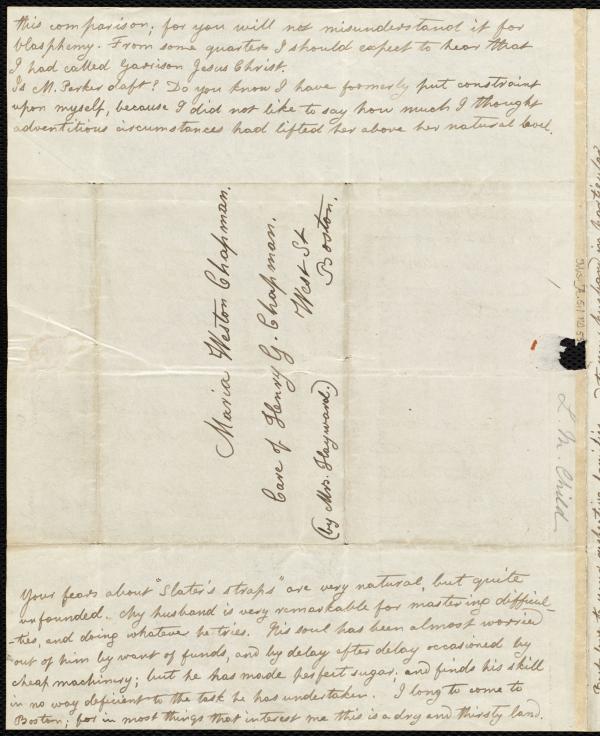 this comparison; for you will not misunderstand it for
blasphemy. From some quarters I should expect to hear that
I had called Garrison Jesus Christ.
Is M. Parker daft? Do you know I have formerly put constraint
upon myself, because I did not like to say how much I thought
adventitious circumstances had lifted her above her natural level.
Maria Weston Chapman.
Care of Henry G. Chapman.
West St
Boston.
(by Mrs. Hayward.)
L. M. Child
Your fears about "Slater's straps" are very natural, but quite
unfounded. My husband is very remarkable for mastering difficul-
-ties, and doing whatever he tries. His soul has been almost worried
out of him by want of funds, and by delay after delay occasioned by
cheap machinery; but he has made perfect sugar; and finds his skill
in no way deficient to the task he has undertaken. I long to come to
Boston; for in most things that interest me this is a dry and thirsty land.